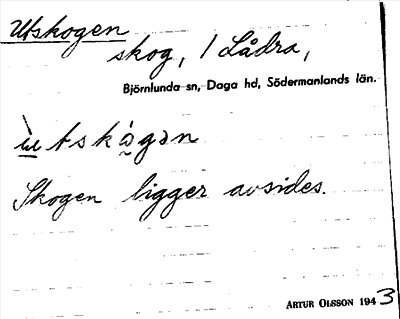 Utskogen
skog, 1 Lådra,
Björnlunda sn, Daga hd, Södermanlands län.
Skogen ligger avsides.
ARTUR OLSSON 1943